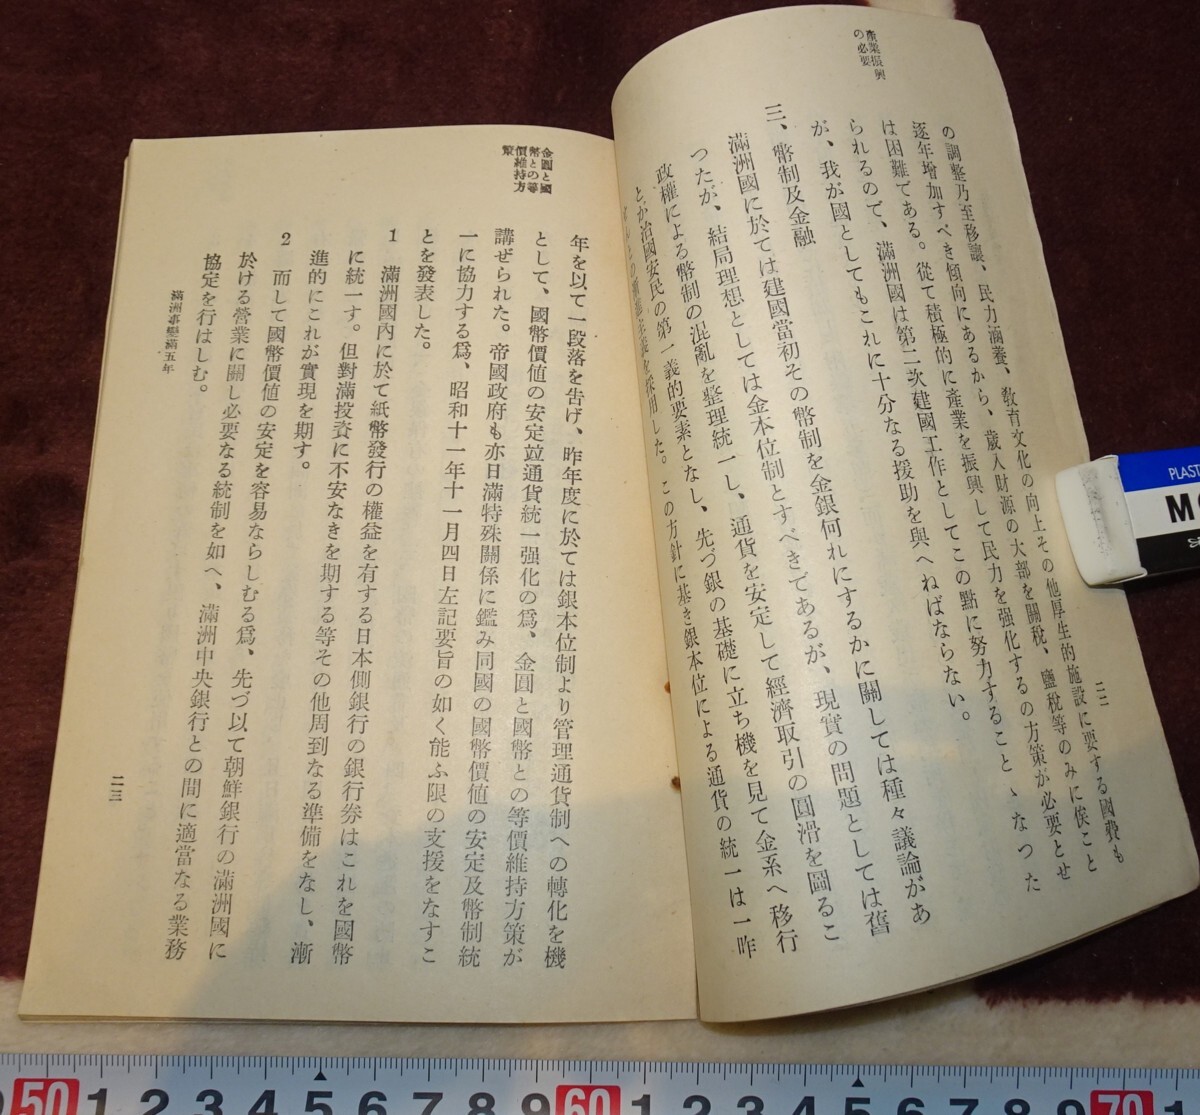 産業振興
の必要
の調整乃至移讓、民力涵養、敎育文化の向上その他厚生的施設に要する國費も
逐年增加すべき傾向にあるから、歲入財源の大部を關稅、鹽稅等のみに俟こと
は困難である。從て積極的に產業を振興して民力を强化するの方策が必要とせ
られるので、滿洲國は第二次建國工作としてこの點に努力することゝなつた
が、我が國としてもこれに十分なる援助を與へねばならない。
三、幣制及金融
滿洲國に於ては建國當初その幣制を金銀何れにするかに關しては種々議論があ
つたが、結局理想としては金本位制とすべきであるが、現實の問題としては舊
政權による幣制の混亂を整理統一し、通貨を安定して經濟取引の圓滑を圖るこ
とが治國安民の第一義的要素となし、先づ銀の基礎に立ち機を見て金系へ移行
を採用した。この方針に基き銀本位による通貨の統一は一昨
二二
金圓と國
幣との等
價維持方
策
年を以て一段落を告げ、昨年度に於ては銀本位制より管理通貨制への轉化を機
として、國幣價値の安定竝通貨統一强化の爲、金圓と國幣との等價維持方策が
講ぜられた。帝國政府も亦日滿特殊關係に鑑み同國の國幣價値の安定及幣制統
一に協力する爲、昭和十一年十一月四日左記要旨の如く能ふ限の支援をなすこ
とを發表した。
1 滿洲國內に於て紙幣發行の權益を有する日本側銀行の銀行券はこれを國幣
に統一す。但對滿投資に不安なきを期する等その他周到なる準備をなし、漸
進的にこれが實現を期す。
2 而して國幣價値の安定を容易ならしむる爲、先づ以て朝鮮銀行の滿洲國に
於ける營業に關し必要なる統制を加へ、滿洲中央銀行との間に適當なる業務
協定を行はしむ。
滿洲事變滿五年
二三
PLAST
50 1 2 3 4 5 6 7 8 9 60 1 2 3 4 5 6 7 8 9 70 1